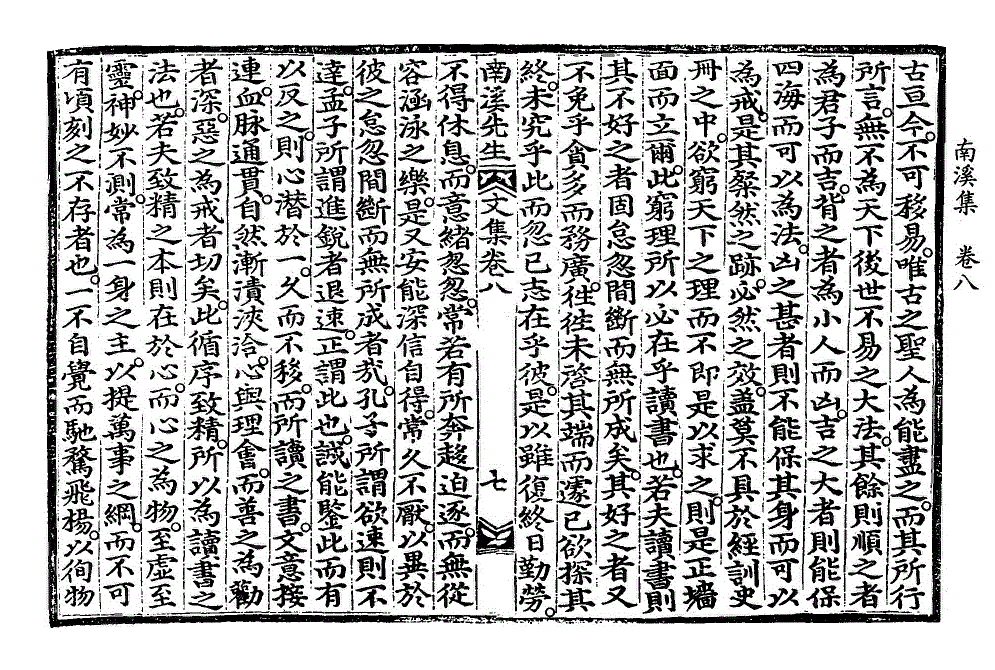 南溪集 卷八
古亘今不可移易。唯古之聖人為能盡之。而其所行
所言。無不為天下後世不易之大法。其餘則順之者
為君子而吉。背之者為小人而凶。吉之大者則能保
四海而可以為法。凶之甚者則不能保其身而可以
為戒。是其粲然之跡。必然之效。蓋莫不具於經訓史
冊之中。欲窮天下之理而不即是以求之。則是正墻
面而立爾。此窮理所以必在乎讀書也。若夫讀書則
其不好之者固怠忽間斷而無所成矣。其好之者又
不免乎貪多而務廣。往往未啓其端而遽已欲探其
終。未究乎此而忽已志在乎彼。是以雖復終日勤勞。
南溪先生文集卷八 七
不得休息。而意緒怱怱。常若有所奔趍迫逐。而無從
容涵泳之樂。是又安能深信自得。常久不厭。以異於
彼之怠忽間斷而無所成者哉。孔子所謂欲速則不
達。孟子所謂進銳者退速。正謂此也。誠能鑒此而有
以反之。則心潛於一。久而不移。而所讀之書。文意接
連。血脉通貫。自然漸漬浹洽。心與理會。而善之為勸
者深。惡之為戒者切矣。此循序致精。所以為讀書之
法也。若夫致精之本則在於心。而心之為物。至虛至
靈。神妙不測。常為一身之主。以提萬事之綱。而不可
有頃刻之不存者也。一不自覺而馳騖飛揚。以徇物